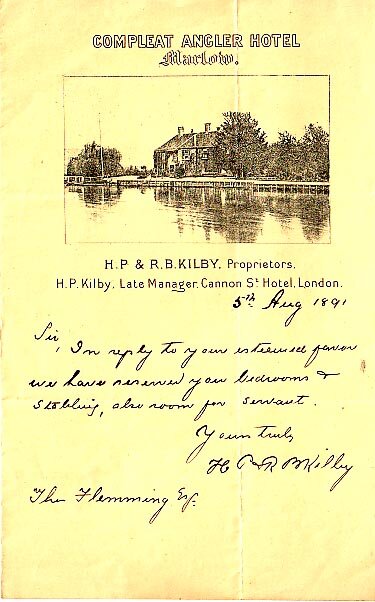 COMPLEAT ANGLER HOTEL
Marlow.
H.P & R.B. KILBY, Proprietors.
H.P. Kilby, Late Manager, Cannon St Hotel, London.
5th Aug 1891
Sir,
In reply to your esteemed favor
we have reserved you bedrooms &
Stabling, also room for servant.
Yours truly
H P & R B Kilby
Flemming Esq.